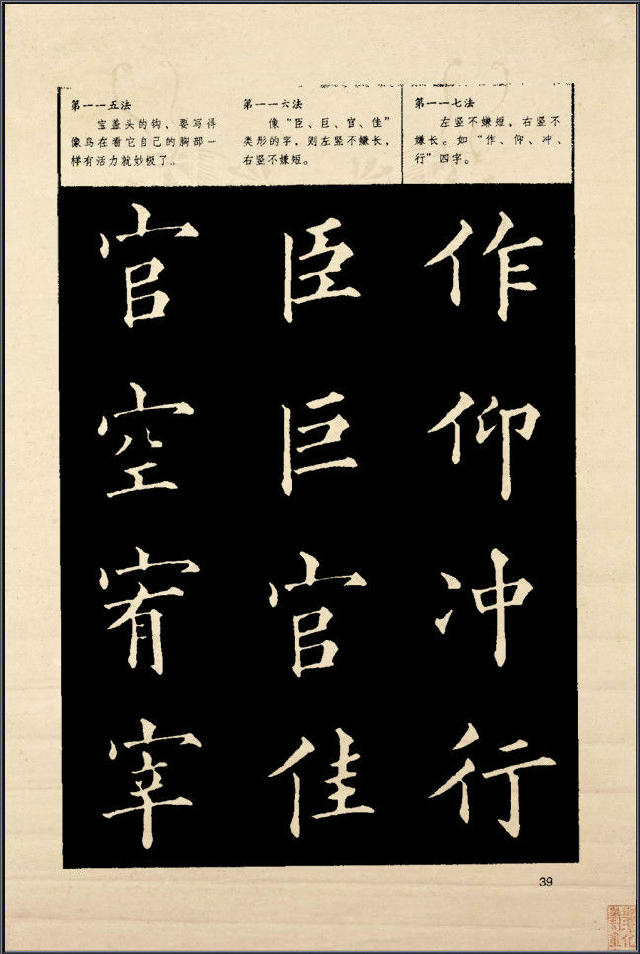 第一一五法
宝盖头的钩，要写得
像鸟在看它自己的胸部一
样有活力就妙极了..
第一一六法
像“臣、巨、官、佳”
类形的字，则左竖不嫌长，
右竖不嫌短。
第一一七法
左竖不嫌短，右竖不
嫌长。如“作、仰、冲、
行”四字。
官
空
宥
宰
臣
巨
官
佳
作
仰
冲
行
39